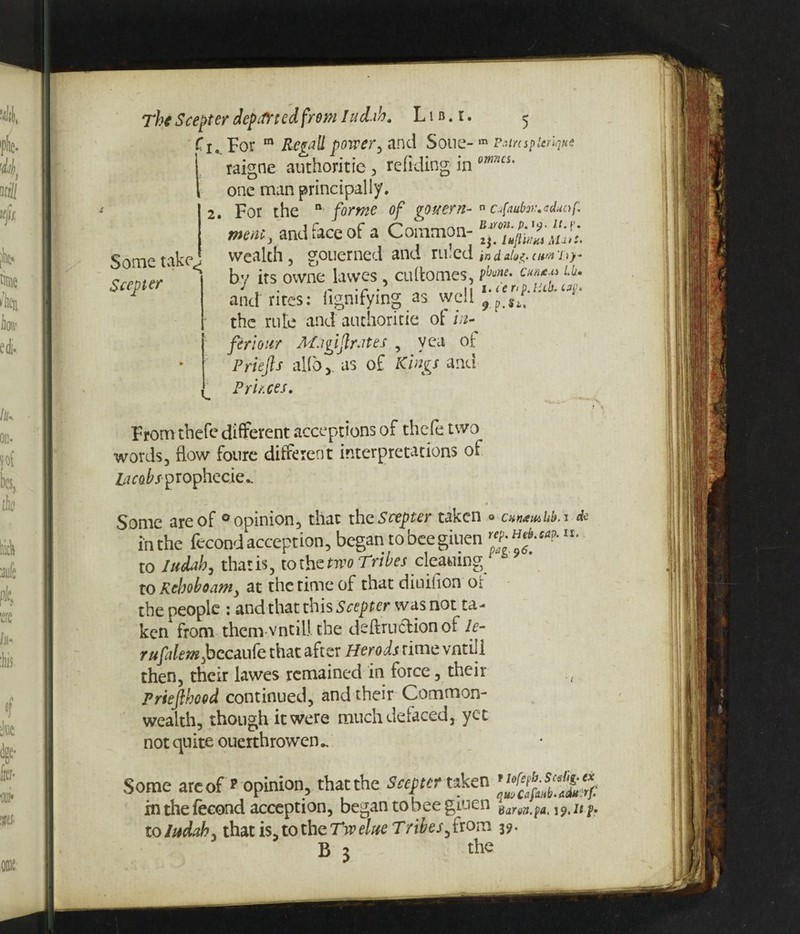 The Scepter departed from Iudah. LIB. I. 5
Some take
Scepter
1. For ᵐ Regall power, and Soue-
raigne authoritie, residing in
one man principally.
2. For the ⁿ forme of gouern-
ment, and face of a Common-
wealth, gouerned and ruled
by its owne lawes, customes,
and rites: signifying as well
the rule and authoritie of in-
feriour Magistrates, yea of
Priests also, as of Kings and
Princes.
ᵐ Patres plerique
omnes.
ⁿ Casaubon. aduers.
Baron. p. 19. It. p.
23. Iustinus Mart.
in dialog. cum Try-
phone. Cunæus lib.
1. de rep. Heb. cap.
9 p. 82.
From these different acceptions of these two
words, flow foure different interpretations of
Iacobs prophecie.
Some are of ᵒ opinion, that the Scepter taken
in the second acception, began to bee giuen
to Iudah, that is, to the two Tribes cleauing
to Rehoboam, at the time of that diuision of
the people: and that this Scepter was not ta-
ken from them vntill the destruction of Ie-
rusalem, because that after Herods time vntill
then, their lawes remained in force, their
Priesthood continued, and their Common-
wealth, though it were much defaced, yet
not quite ouerthrowen.
ᵒ Cunæus lib. 1 de
rep. Heb. cap. 11.
pag. 96.
Some are of ᵖ opinion, that the Scepter taken
in the second acception, began to bee giuen
to Iudah, that is, to the Twelue Tribes, from
ᵖ Ioseph. Scalig. ex
quo Casaub. aduers.
Baron. pa. 19. It p.
39.
B 3 the